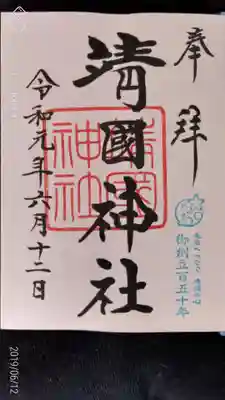 奉拝
靖國神社
靖國神社
御創立百五十年
令和元年六月十二日
2019/06/12